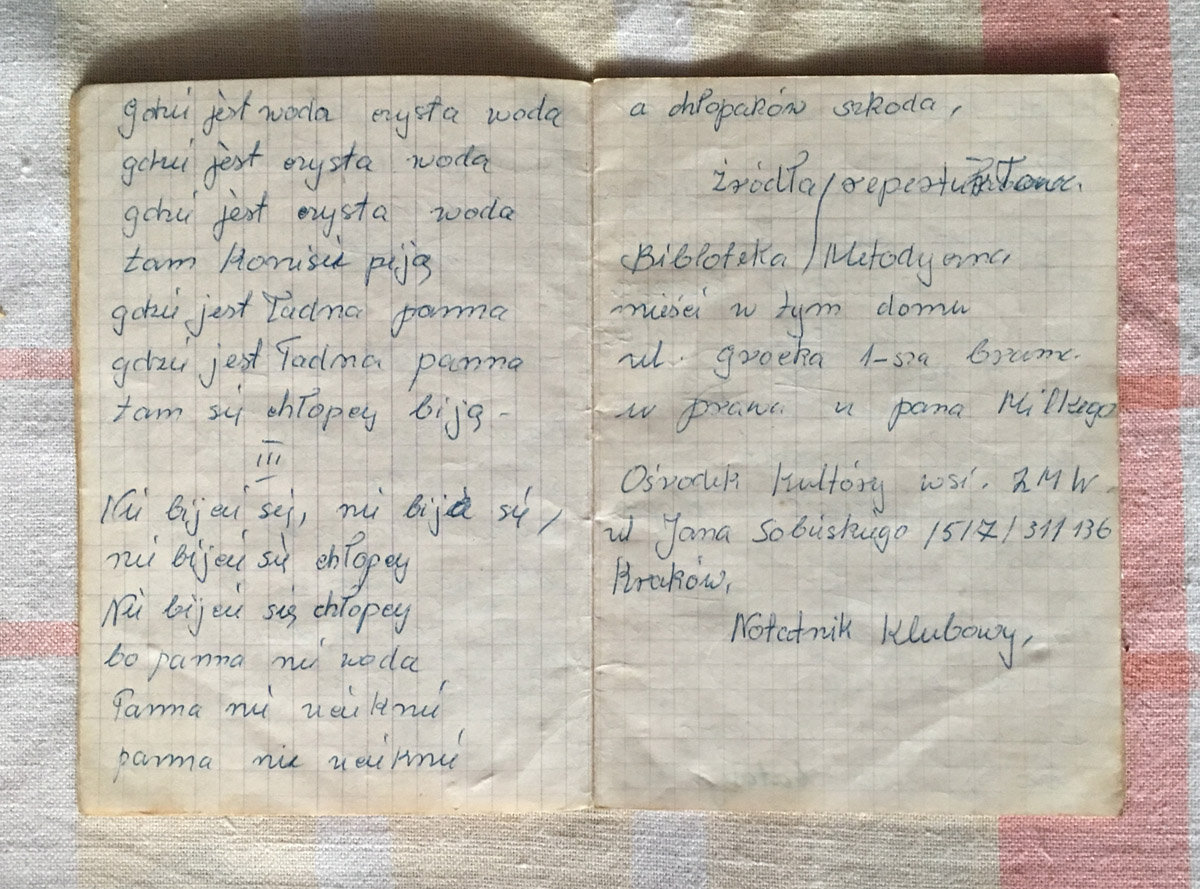 gdzie jest woda czysta woda
gdzie jest czysta woda
gdzie jest czysta woda
tam konisie piją
gdzie jest ładna panna
gdzie jest ładna panna
tam się chłopcy biją -
III
Nie bijcie się, nie bijcie się,
nie bijcie się chłopcy
Nie bijcie się chłopcy
bo panna nie woda
Panna nie ucieknie
panna nie ucieknie
a chłopaków szkoda,
źródła repertuarowe
Bibloteka Metodyczna
mieści w tym domu
ul. grocka 1-sza bram.
w prawa u pana Milkego
Ośrodek Kultóry wsi. ZMW.
ul Jana Sobieskiego 15/7/311136
Kraków,
Notatnik Klubowy,